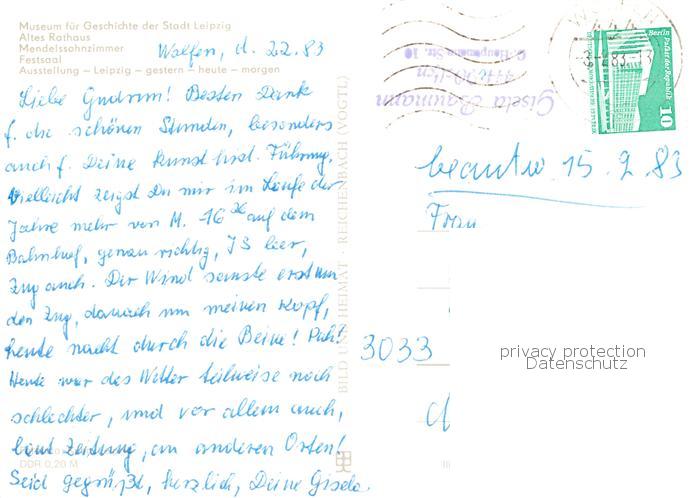 Museum für Geschichte der Stadt Leipzig
Altes Rathaus
Mendelssohnzimmer
Festsaal
Ausstellung – Leipzig – gestern – heute – morgen
Wolfen, d. 2.2.83
Liebe Gudrun! Besten Dank
f. die schönen Stunden, besonders
auch f. Deine kunsthist. Führung.
Vielleicht zeigst Du mir im Laufe der
Jahre mehr von M. 16²⁶ auf dem
Bahnhof, genau richtig, JS leer,
Zug auch. Der Wind sauste erst um
den Zug, danach um meinen Kopf,
heute nacht durch die Beine! Puh!
Heute war das Wetter teilweise noch
schlechter, und vor allem auch,
laut Zeitung, an anderen Orten!
Seid gegrüßt, herzlich, Deine Gisela.
DDR 0,20 M
BILD UND HEIMAT · REICHENBACH (VOGTL)
Gisela Baumann
4440 Wolfen
G.-Hauptmann-Str. 10
Berlin
Palast der Republik
10
beantw. 15.2.83
Frau
3033
privacy protection
Datenschutz